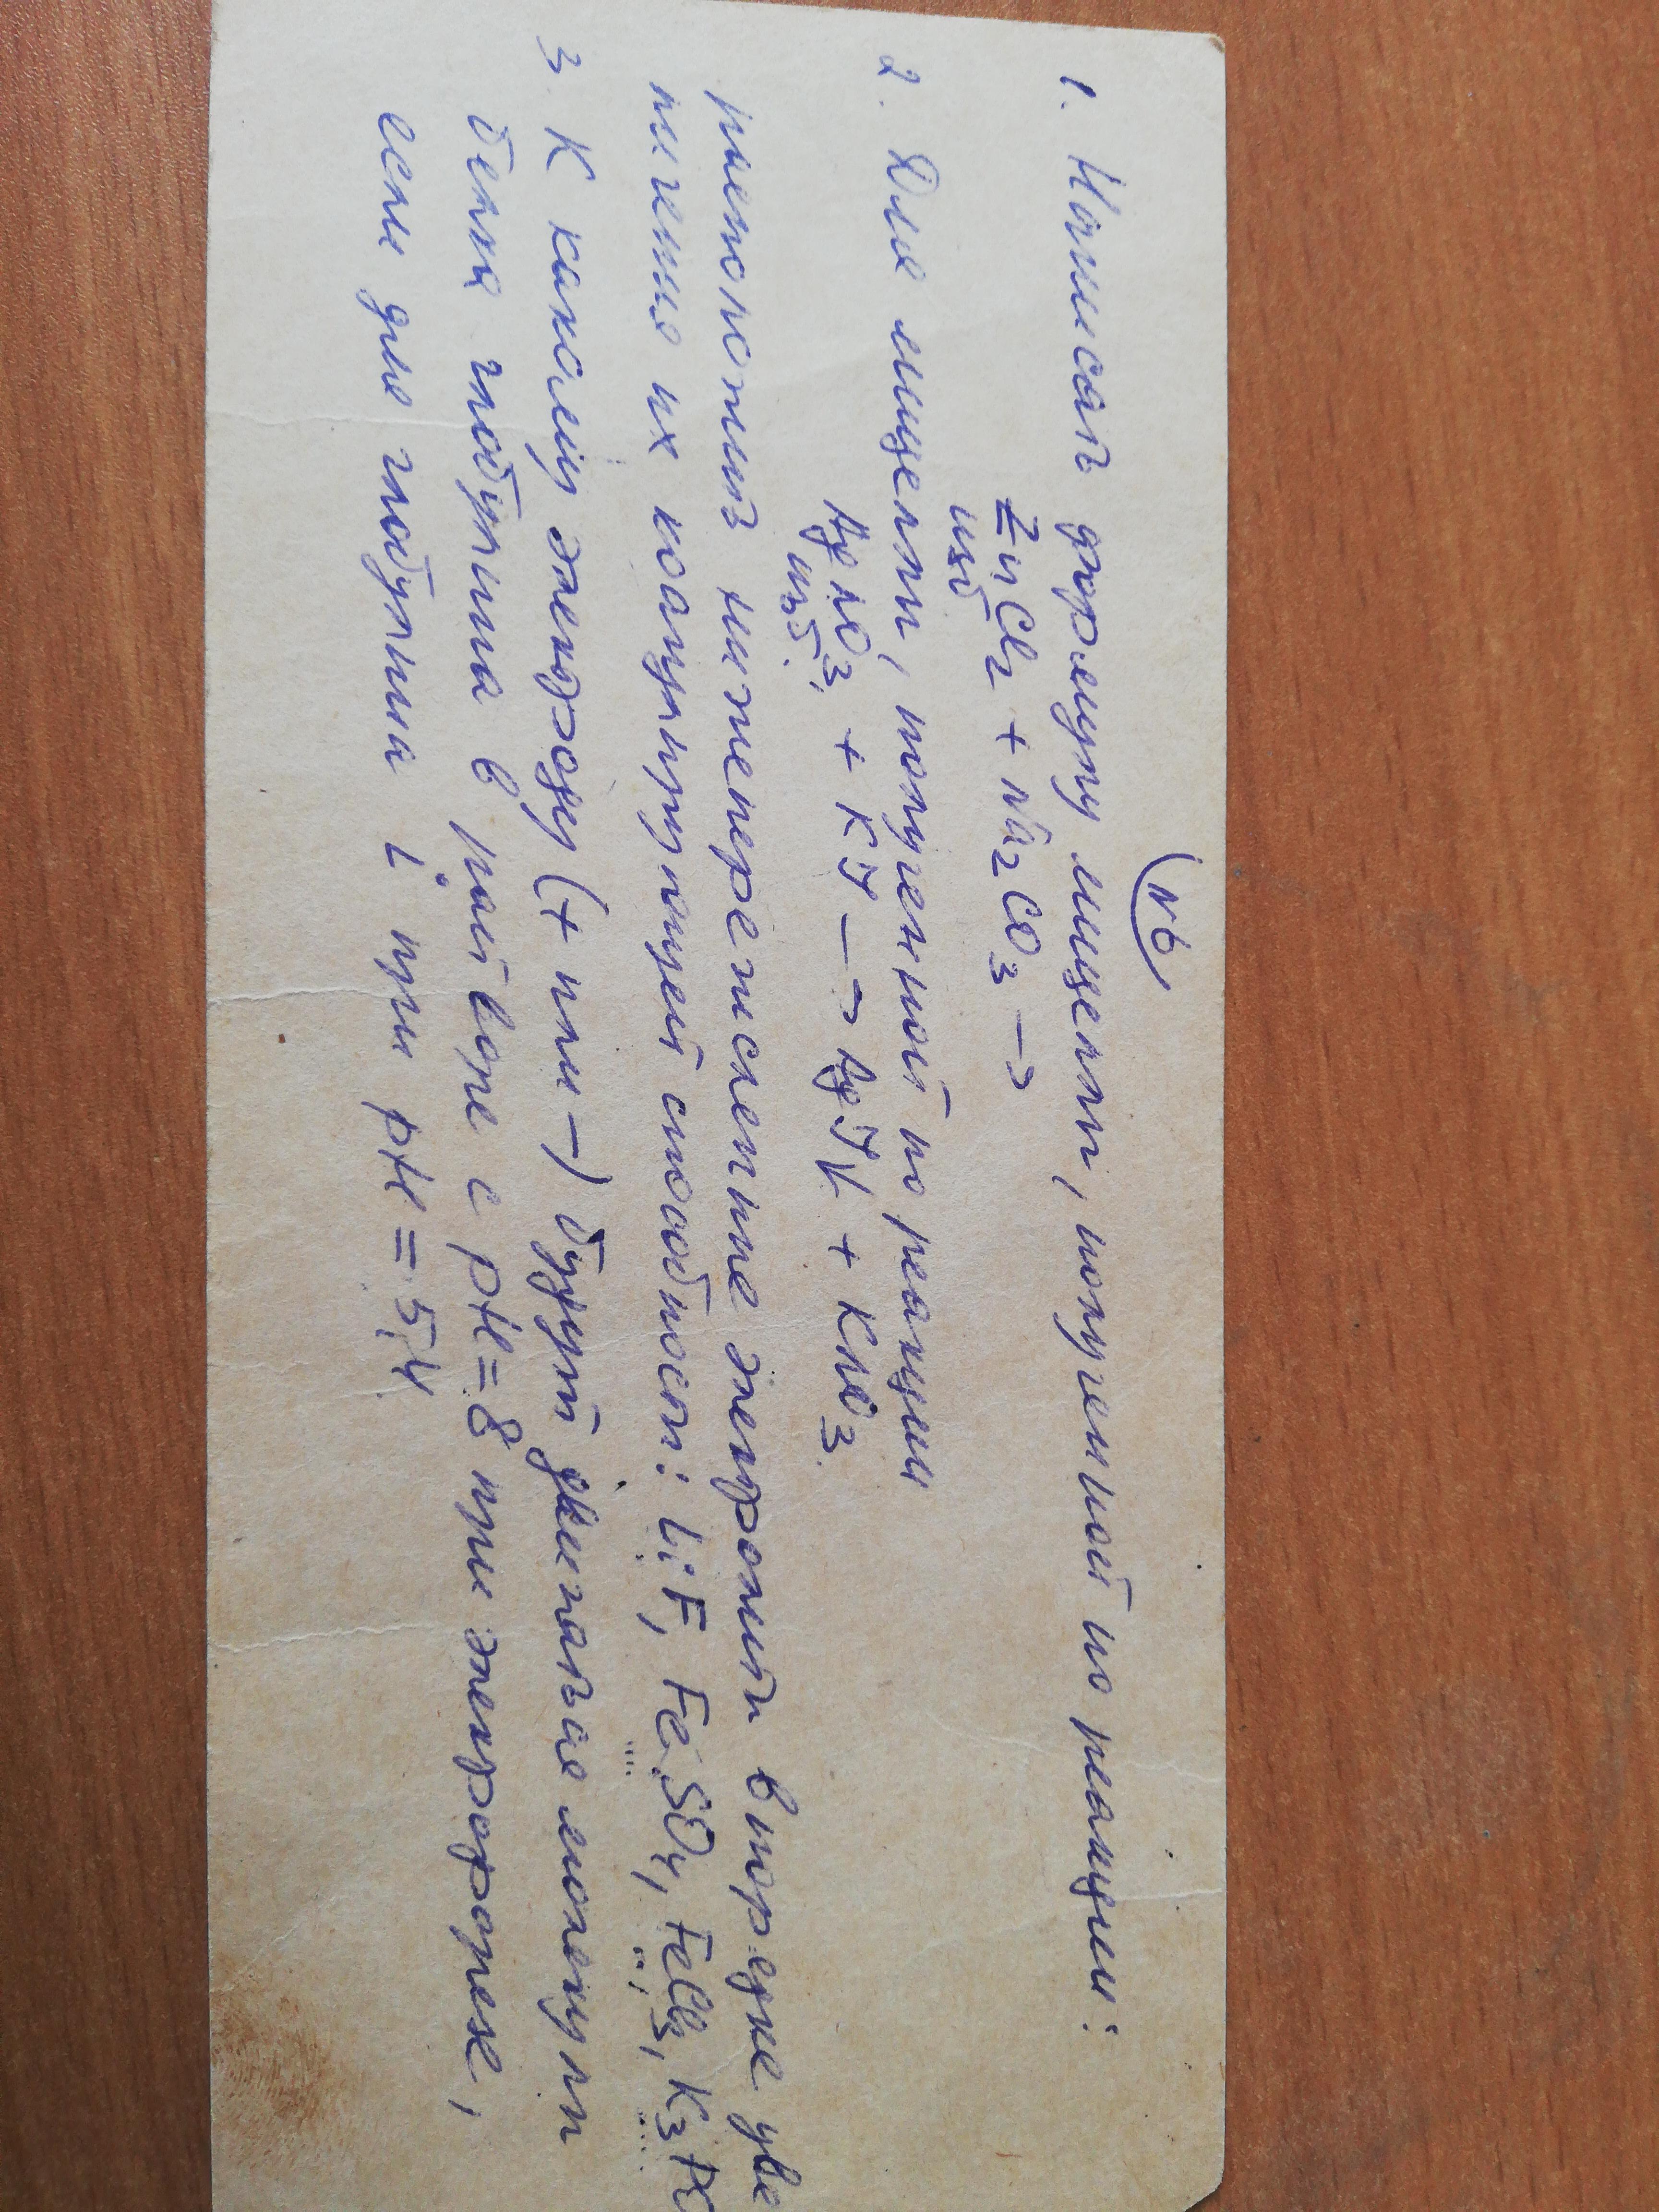 №6
1. Написать формулу мицеллы, полученной по реакции:
ZnCl2 + Na2CO3 →
изб
2. Для мицеллы, полученной по реакции
AgNO3 + KJ → AgJ↓ + KNO3
изб.
расположить нижеперечисленные электролиты в порядке уве
личения их коагулирующей способности: LiF, FeSO4, FeCl3, K3PO
3. К какому электроду (+ или –) будут двигаться молекулы
белка глобулина в растворе с pH = 8 при электрофорезе,
если для глобулина i при pH = 5,4